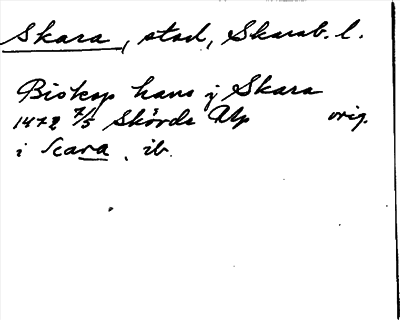 Skara, stad, Skarab. l.
Biskop hans j Skara
1472 7/5 Skövde Up orig.
i Scara, ib.